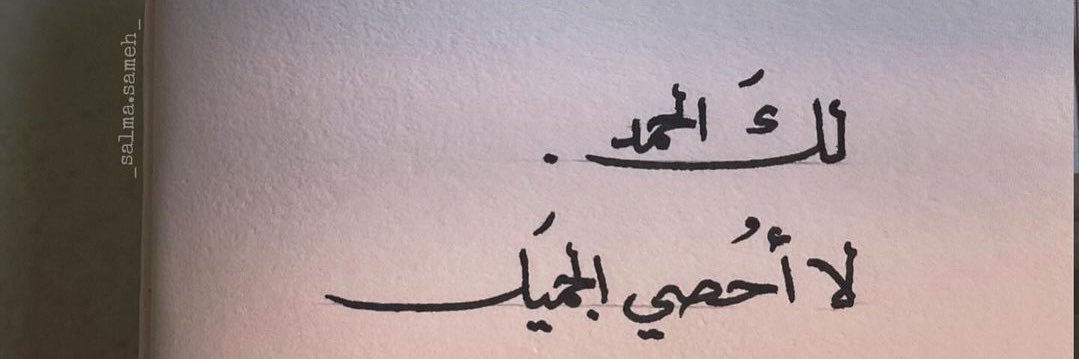 لكَ الحمد .
لا أُحصي الجميَل
_salma.sameh_